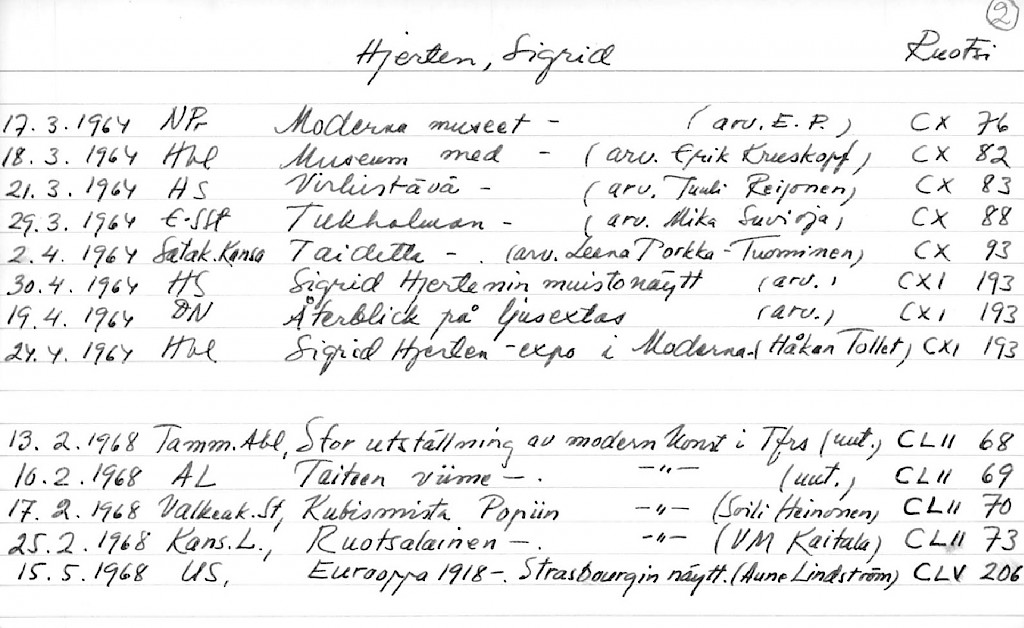 2
Hjerten, Sigrid Ruotsi
17.3.1964 NPr Moderna museet - (arv. E.P.) CX 76
18.3.1964 Hbl Museum med - (arv. Erik Kruskopf) CX 82
21.3.1964 HS Virkistävä - (arv. Tuuli Reijonen) CX 83
29.3.1964 E-SSt Tukholman - (arv. Mika Suvioja) CX 88
2.4.1964 Satak.Kansa Taidetta - . (arv. Leena Porkka-Tuominen) CX 93
30.4.1964 HS Sigrid Hjertenin muistonäytt (arv.) CXI 193
19.4.1964 DN Återblick på ljusextas (arv.) CXI 193
24.4.1964 Hbl Sigrid Hjerten-expo i Moderna-(Håkan Tollet) CXI 193
13.2.1968 Tamm.Abl, Stor utställning av modern konst i Tfrs (uut.) CLII 68
16.2.1968 AL Taiteen viime-. -"- (uut.) CLII 69
17.2.1968 Valkeak.St, Kubismista Popiin -"- (Soili Heinonen) CLII 70
25.2.1968 Kans.L., Ruotsalainen-. -"- (VM Kaitala) CLII 73
15.5.1968 US, Eurooppa 1918-. Strasbourgin näytt. (Aune Lindström) CLV 206